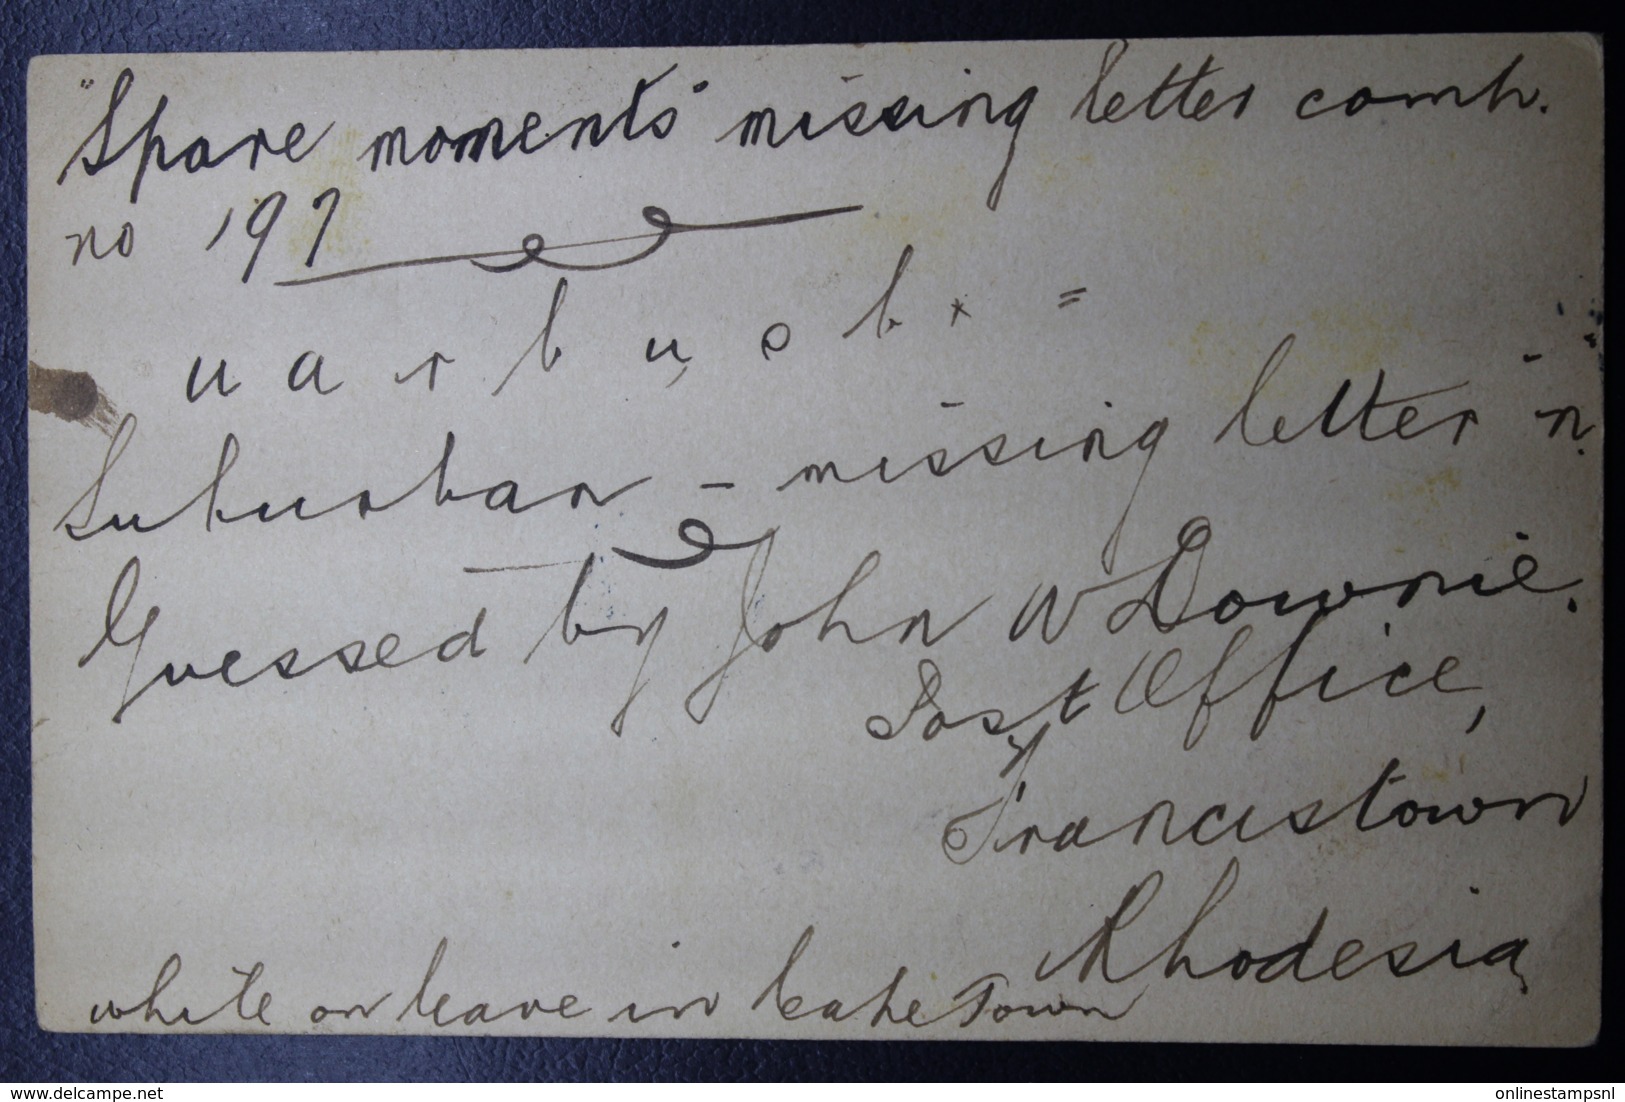 "Spare moments" missing letter comp.
no 197
u a r b u s b x =
Suburban - missing letter "n"
Guessed by John W Downie.
Post Office,
Francistown
Rhodesia
white on leave in Cape Town
onlinestampsnl